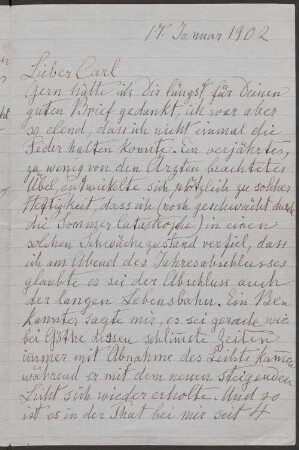 17 Januar 1902
Lieber Carl
Gern hätte ich Dir längst für Deinen
guten Brief gedankt, ich war aber
so elend, dass ich nicht einmal die
Feder halten konnte. Ein verjährtes,
zu wenig von den Ärzten beachtetes
Übel, entwickelte sich plötzlich zu solcher
Heftigkeit, dass ich (noch geschwächt durch
die Sommer Catastrophe) in einen
solchen Schwächezustand verfiel, dass
ich am Abend des Jahresabschlusses
glaubte es sei der Abschluss auch
der langen Lebensbahn. Ein Be-
kannter sagte mir, es sei gerade wie
bei Göthe dessen schlimste Zeiten
immer mit Abnahme des Lichts kamen
während er mit dem neuen steigenden
Licht sich wieder erholte. Und so
ist es in der That bei mir seit 4